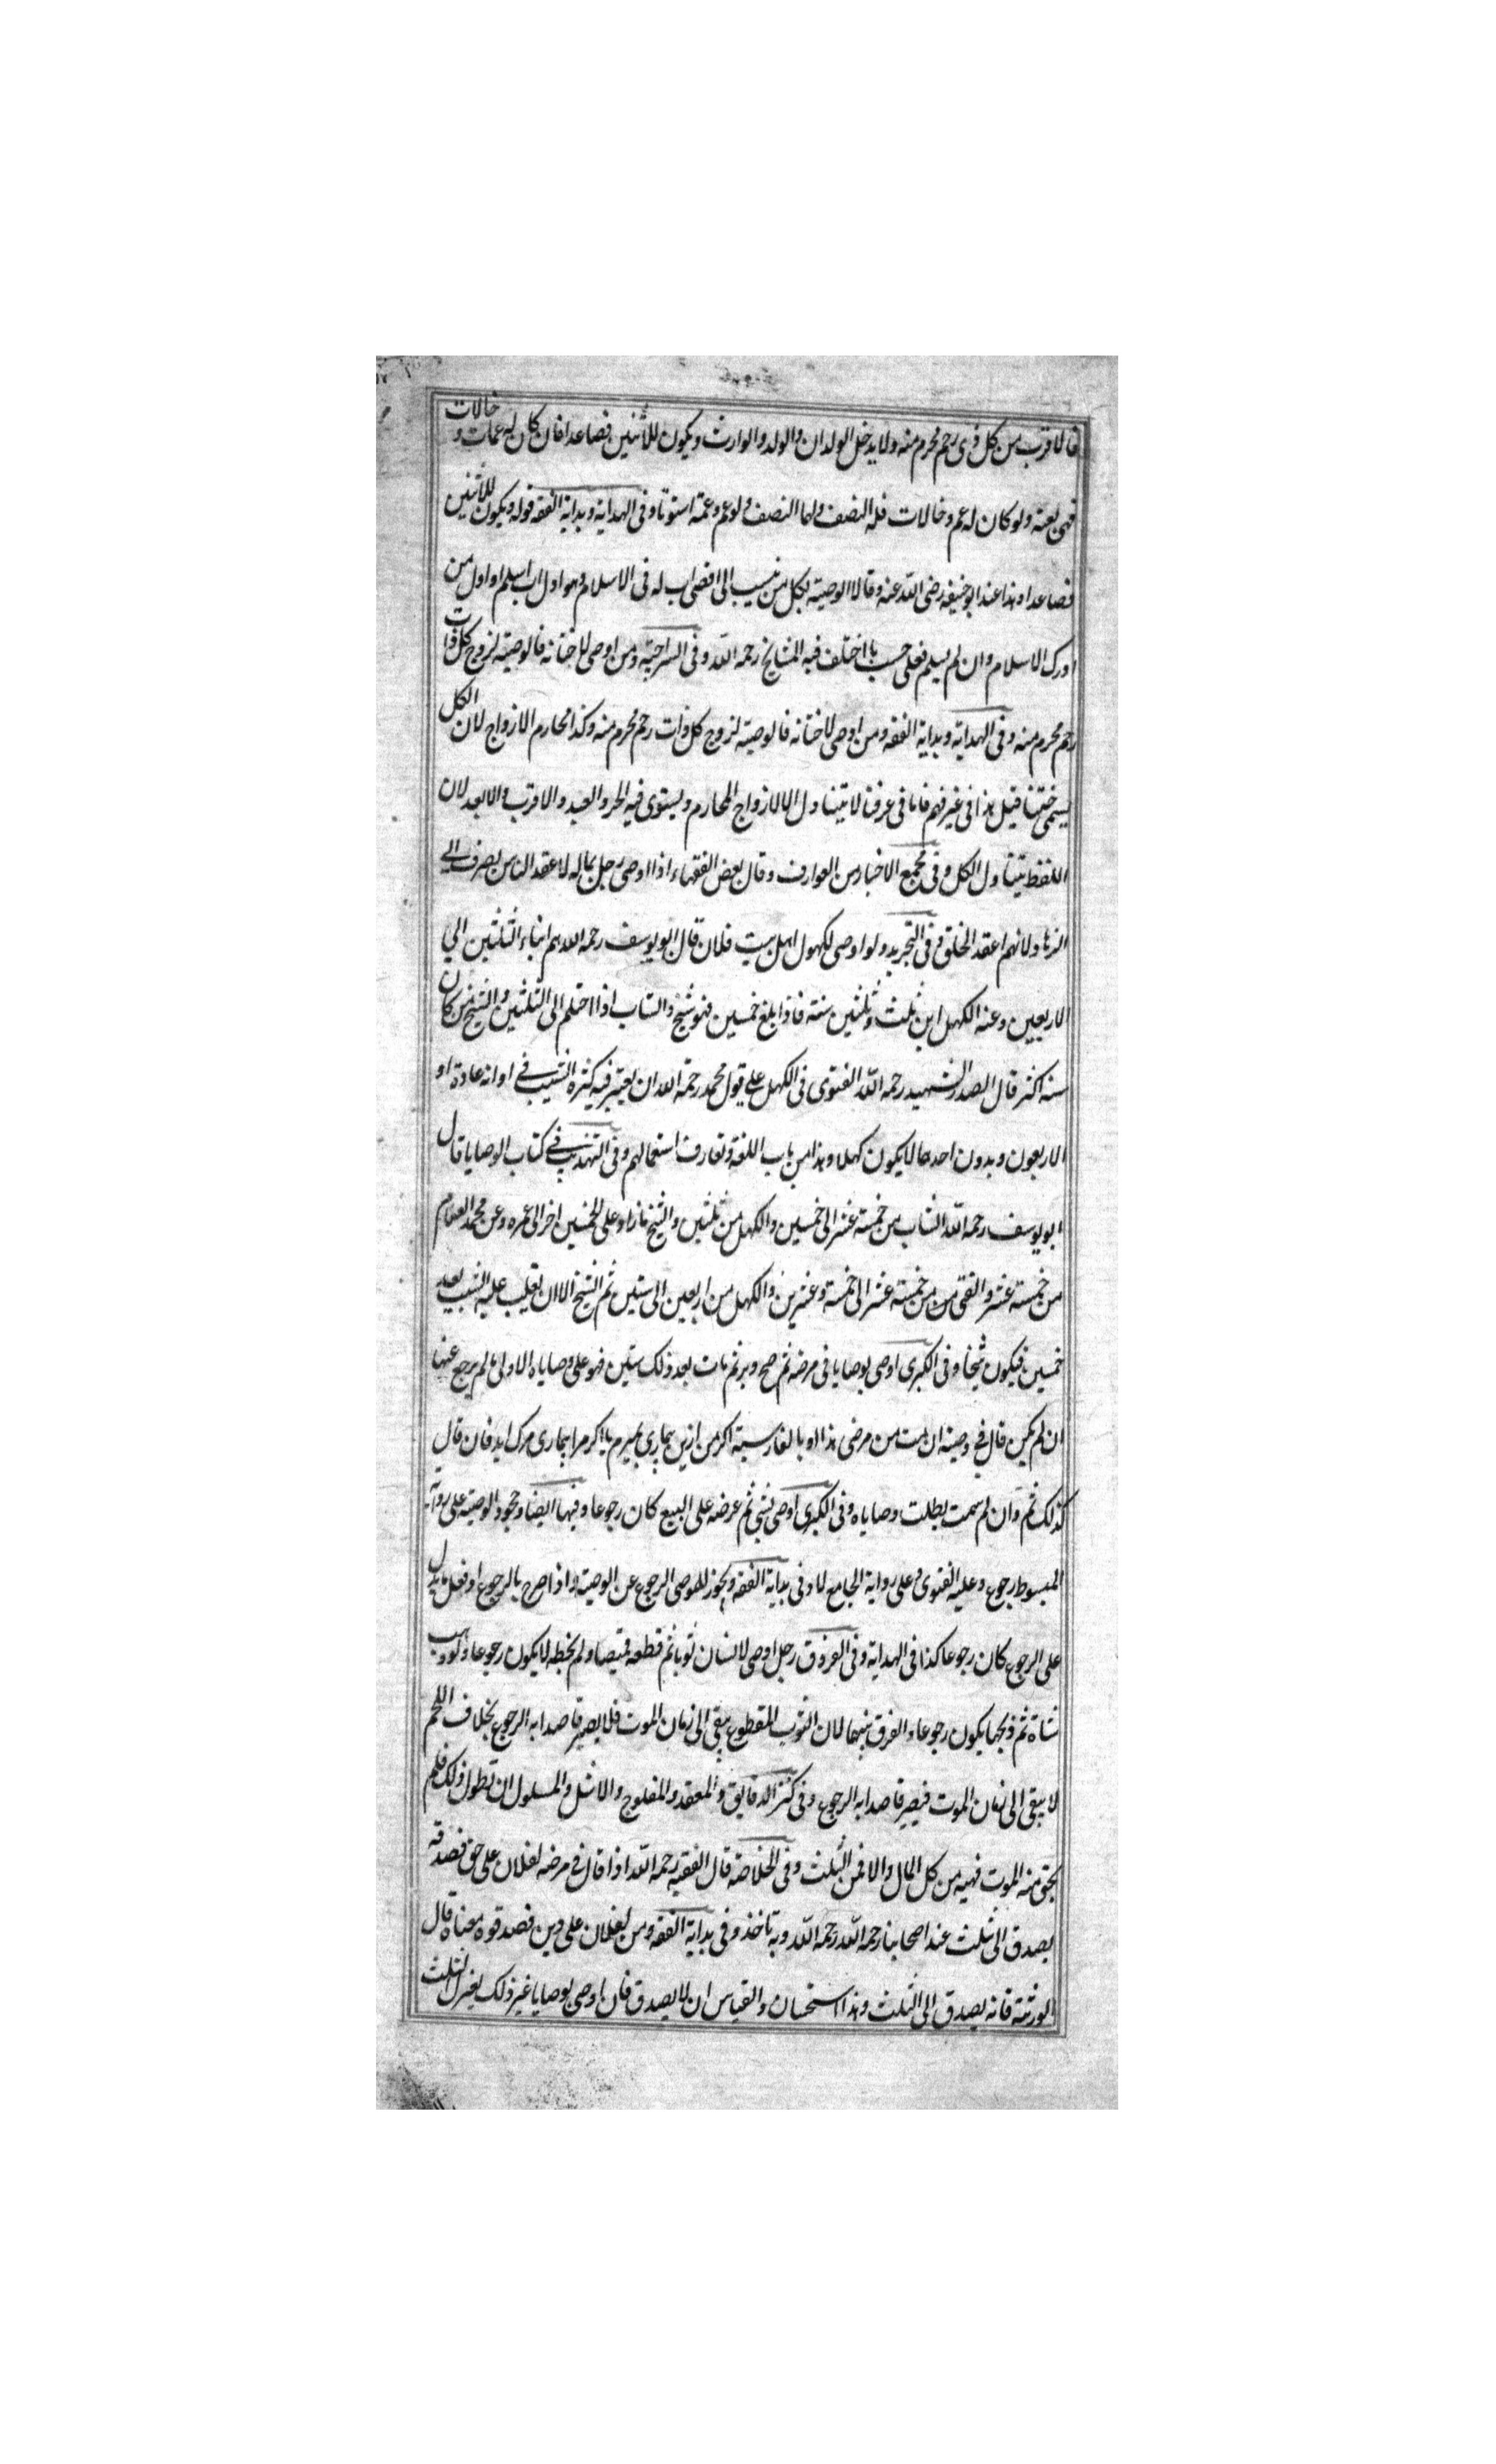 فالاقرب من كل ذى رحم محرم منه ولا يدخل الولدان والولد والوارث ويكون للاثنين فصاعدا فان كان له عمات و خالات
فهى لعمته ولو كان له عم وخالات فله النصف ولهما النصف ولو عم وعمة استوتا وفى الهداية وبداية الفقه قوله ويكون للاثنين
فصاعدا وهذا عند ابو حنيفه رضى الله عنه وقالا الوصية لكل من ينسب الى اقصى اب له فى الاسلام وهو اول اب اسلم او اول من
ادرك الاسلام وان لم يسلم فعلى حسب ما اختلف فيه المشايخ رحمه الله وفى السراجية ومن اوصى لاختانه فالوصية لزوج كل ذات
رحم محرم منه وفى الهداية وبداية الفقه ومن اوصى لاختانه فالوصية لزوج كل ذات رحم محرم منه وكذا محارم الازواج لان الكل
يسمى ختنا قيل هذا فى غيرفهم فاما فى عرفنا لا يتناول الا لازواج المحارم ويستوى فيه الحر والعبد والاقرب والابعد لان
اللفظ يتناول الكل وفى مجمع الاخبار من العوارف وقال بعض الفقهاء اذا اوصى رجل بماله لاعقد الناس يصرف الى
الزهاد لانهم اعقد الخلق وفى التجريد ولو اوصى لكهول اهل بيت فلان قال ابو يوسف رحمه الله هم ابناء الثلثين الى
الاربعين وعنه الكهل ابن ثلث وثلثين سنة فاذا بلغ خمسين فهو شيخ والشاب اذا احتلم الى الثلثين والشيخ من كان
سنه اكثر قال الصدر الشهيد رحمه الله الفتوى فى الكهل على قول محمد رحمة الله ان يعتبر فيه كثرة الشيب فى اوانه عادة او
الاربعون وبدون احدهما لا يكون كهلا وهذا من باب اللغة وتعارف استعمالهم وفى التهذيب فى كتاب الوصايا قال
ابو يوسف رحمه الله الشاب من خمسة عشر الى خمسين والكهل من ثلثين والشيخ ما زاد على الخمسين اخر الى عمره وعن محمد الغلام
من خمسة عشر والفتى من خمسة عشر الى خمسة وعشرين والكهل من اربعين الى ستين ثم الشيخ الا ان يغلب عليه الشيب بعد
خمسين فيكون شيخا وفى الكبرى اوصى بوصايا فى مرضه ثم صح وبر ثم مات بعد ذلك سنين فهو على وصاياه الاولى ما لم يرجع عنها
ان لم يكن قال فى وصية ان مت من مرضى هذا او بالفارسية اكر من ازين بيمارى بميرم يا اكر مرا بيمارى مرك ايد فان قال
كذلك ثم وان لم يمت بطلت وصاياه وفى الكبرى اوصى بشى ثم عرضه على البيع كان رجوعا وفيها ايضا وجحود الوصية على رواية
المبسوط رجوع وعليه الفتوى وعلى رواية الجامع لا وفى بداية الفقه ويجوز للموصى الرجوع عن الوصية واذا صرح بالرجوع او فعل ما يدل
على الرجوع كان رجوعا كذا فى الهداية وفى الفروق رجل اوصى لانسان ثوبا ثم قطعه قميصا ولم يخطه لا يكون رجوعا ولو وهب
شاة ثم ذبحها يكون رجوعا والفرق بينهما لان الثوب المقطوع يبقى الى زمان الموت فلا يصير قاصدا به الرجوع بخلاف اللحم
لا يبقى الى زمان الموت فيصير قاصدا به الرجوع وفى كنز الدقايق والمعقد والمفلوج والاشل والمسلول ان تطول ذلك فلم
يخف منه الموت فهبه من كل المال والا فمن الثلث وفى الخلاصة قال الفقيه رحمه الله اذا قال فى مرضه لفلان على حق فصدقه
يصدق الى ثلث عند اصحابنا رحمه الله رحمه الله وبه تاخذ وفى بداية الفقه ومن لفلان على دين فصدقوه معناه قال
الورثة فانه يصدق الى الثلث وهذا استحسان والقياس ان لا يصدق فان اوصى بوصايا غير ذلك يعزل الثلث